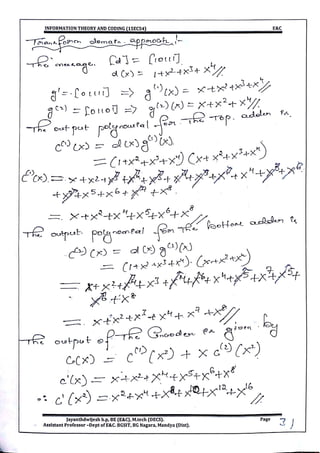 INFORMATION THEORY AND CODING (15EC54) E&C
Transform domain approach :-
The message [d] = [10111].
d(x) = 1+x²+x³+x⁴//.
g¹ = [01111] => g⁽¹⁾(x) = x+x²+x³+x⁴
g⁽²⁾ = [01101] => g⁽²⁾(x) = x+x²+x⁴//.
The output polynomial for The Top. adder is.
c⁽¹⁾(x) = d(x) g⁽¹⁾(x)
= (1+x²+x³+x⁴) (x+x²+x³+x⁴)
= x+x²+x⁴+x⁵+x⁶+x⁸//
The output polynomial for The bottom adder is
c⁽²⁾(x) = d(x) g⁽²⁾(x)
= (1+x²+x³+x⁴). (x+x²+x⁴)
= x+x²+x³+x⁴+x⁷+x⁸//
The output of The Encoder is given by
C(x) = c⁽¹⁾(x²) + x c⁽²⁾(x²)
c¹(x) = x+x²+x⁴+x⁵+x⁶+x⁸
∴ c¹(x²) = x²+x⁴+x⁸+x¹⁰+x¹²+x¹⁶
Jayanthdwijesh h.p, BE (E&C), M.tech (DECS). Page 31
Assistant Professor -Dept of E&C. BGSIT, BG Nagara, Mandya (Dist).